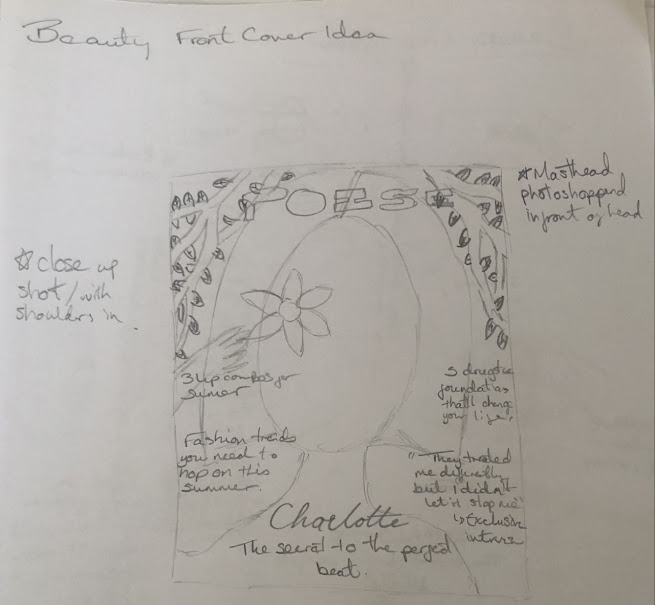 Beauty Front Cover Idea
☆ Masthead
photoshopped
in front of head
POESE
☆ close up
shot / with
shoulders in.
3 lip combos for
summer
5 drugstore
foundations
that'll change
your life.
Fashion trends
you need to
hop on this
summer.
"They treated
me differently
but I didn't
let it stop me"
↳ Exclusive
Charlotte
The secret to the perfect
beat.